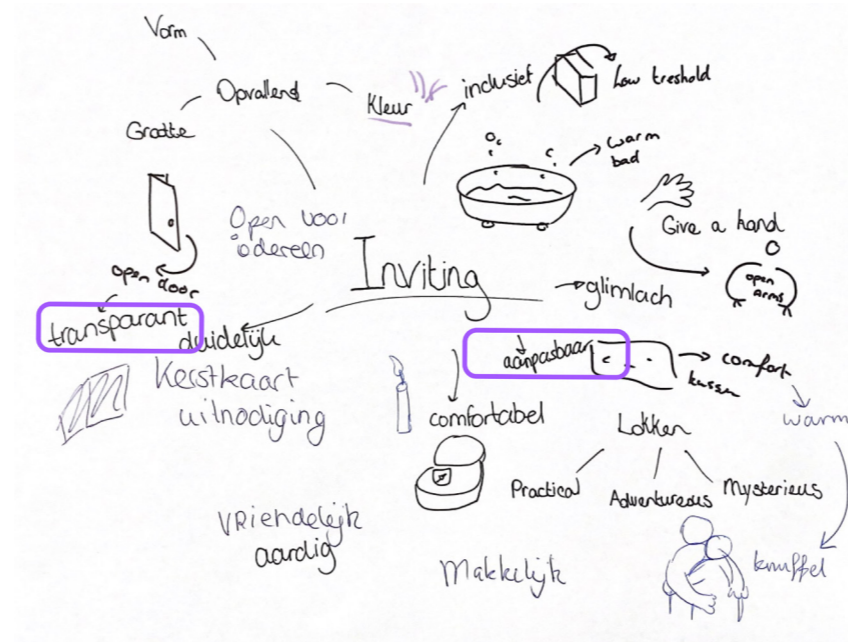 Vorm
Opvallend
Kleur
Grootte
inclusief
Low treshold
warm
bad
Give a hand
open
arms
Open voor
iedereen
Inviting
open door
glimlach
transparant
duidelijk
aanpasbaar
comfort
kussen
warm
Kerstkaart
uitnodiging
comfortabel
Lokken
Practical
Adventureous
Mysterieus
knuffel
VRiendelijk
aardig
Makkelijk